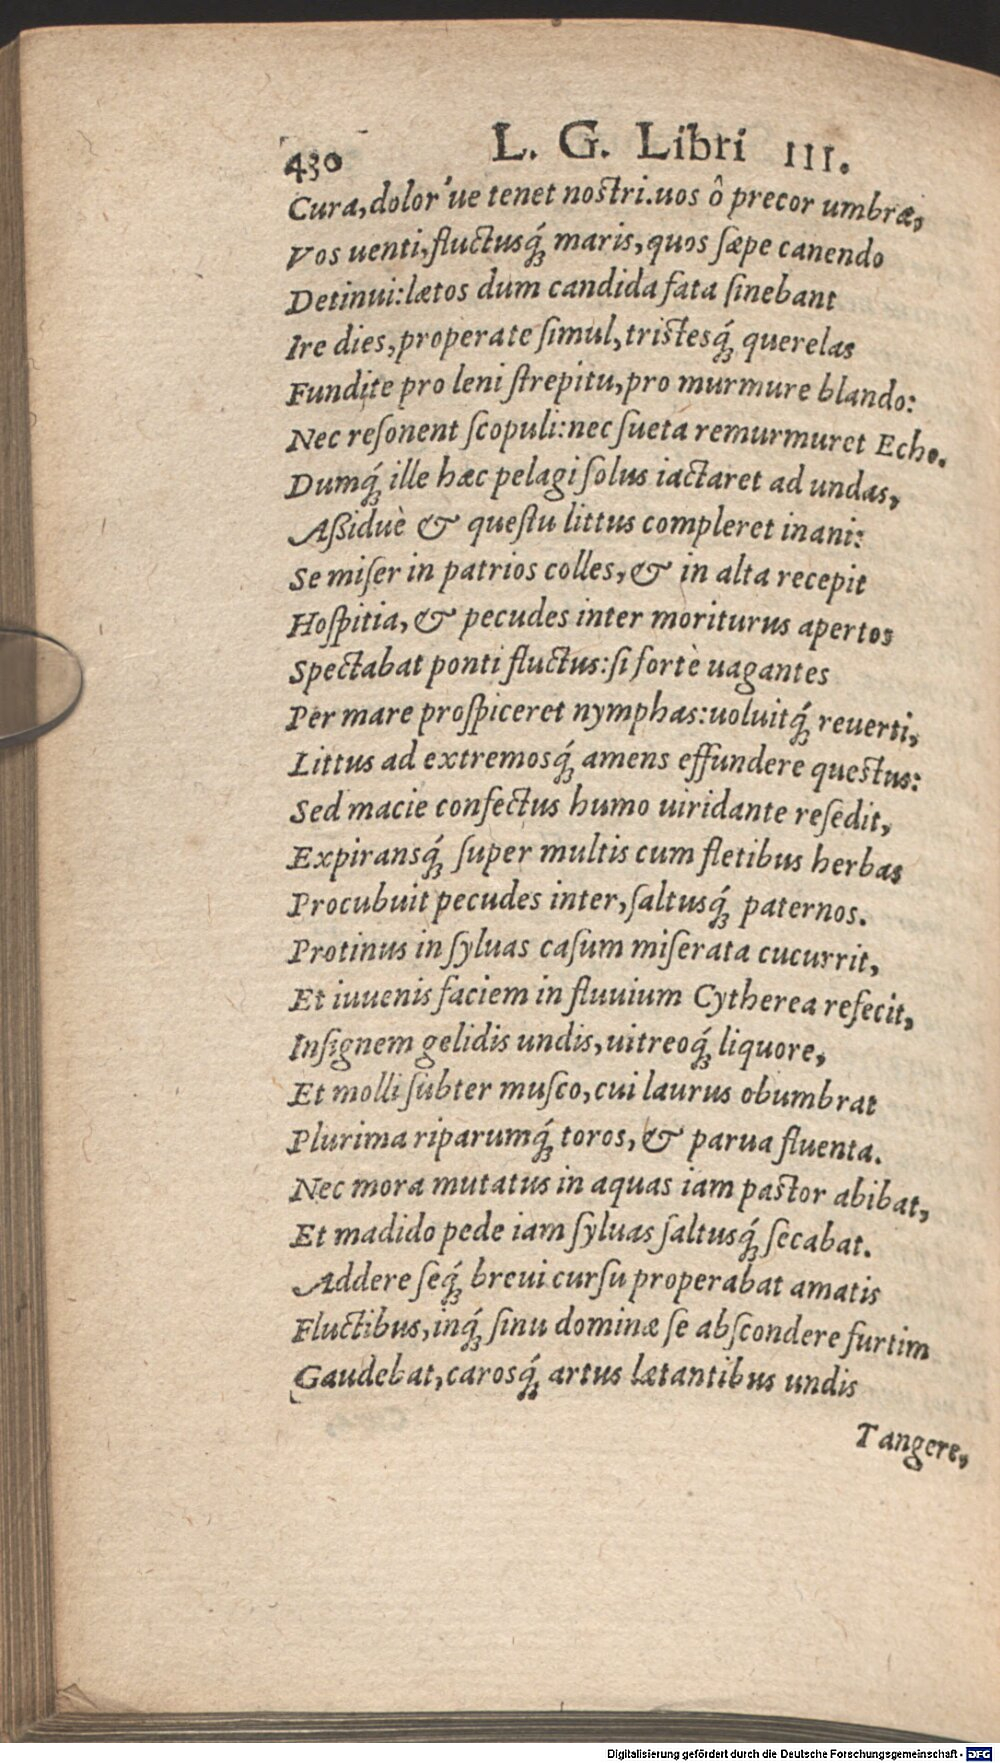 430 L. G. Libri III.
Cura, dolor've tenet noſtri. uos ô precor umbræ,
Vos uenti, fluctusq́; maris, quos ſæpe canendo
Detinui: lætos dum candida fata ſinebant
Ire dies, properate ſimul, triſtesq́; querelas
Fundite pro leni ſtrepitu, pro murmure blando:
Nec reſonent ſcopuli: nec ſueta remurmuret Echo.
Dumq́; ille hæc pelagi ſolus iactaret ad undas,
Aßiduè & queſtu littus compleret inani:
Se miſer in patrios colles, & in alta recepit
Hoſpitia, & pecudes inter moriturus apertos
Spectabat ponti fluctus: ſi fortè uagantes
Per mare proſpiceret nymphas: uoluitq́; reuerti,
Littus ad extremosq́; amens effundere queſtus:
Sed macie confectus humo uiridante reſedit,
Expiransq́; ſuper multis cum fletibus herbas
Procubuit pecudes inter, ſaltusq́; paternos.
Protinus in ſyluas caſum miſerata cucurrit,
Et iuuenis faciem in fluuium Cytherea refecit,
Inſignem gelidis undis, uitreoq́; liquore,
Et molli ſubter muſco, cui laurus obumbrat
Plurima riparumq́; toros, & parua fluenta.
Nec mora mutatus in aquas iam paſtor abibat,
Et madido pede iam ſyluas ſaltusq́; ſecabat.
Addere ſeq́; breui curſu properabat amatis
Fluctibus, inq́; ſinu dominæ ſe abſcondere furtim
Gaudebat, carosq́; artus lætantibus undis
Tangere,
Digitalisierung gefördert durch die Deutsche Forschungsgemeinschaft - DFG